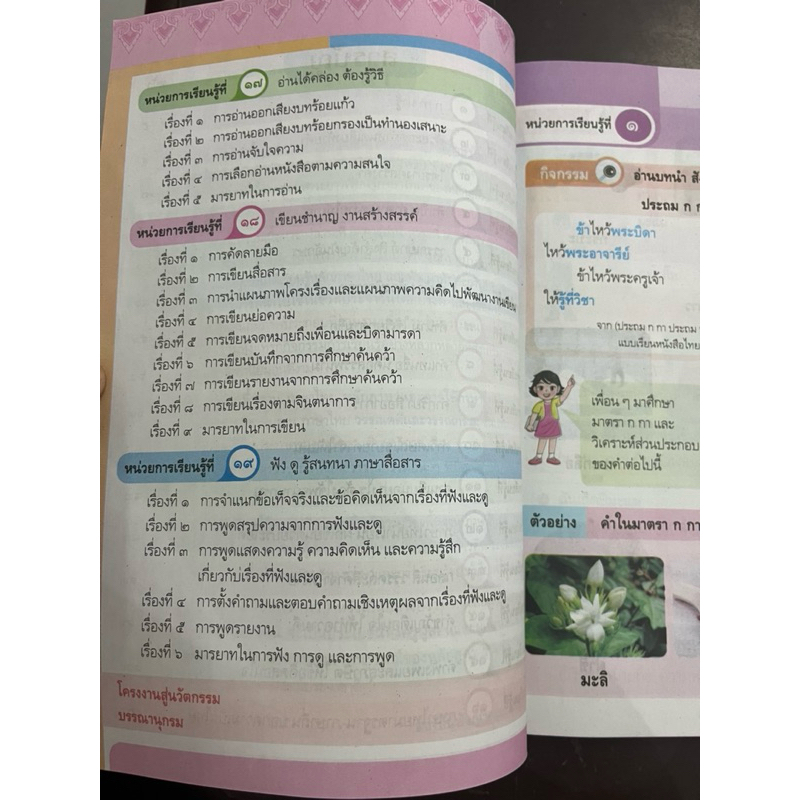 หน่วยการเรียนรู้ที่ ๑๗ อ่านได้คล่อง ต้องรู้วิธี
เรื่องที่ ๑ การอ่านออกเสียงบทร้อยแก้ว
เรื่องที่ ๒ การอ่านออกเสียงบทร้อยกรองเป็นทำนองเสนาะ
เรื่องที่ ๓ การอ่านจับใจความ
เรื่องที่ ๔ การเลือกอ่านหนังสือตามความสนใจ
เรื่องที่ ๕ มารยาทในการอ่าน
หน่วยการเรียนรู้ที่ ๑๘ เขียนชำนาญ งานสร้างสรรค์
เรื่องที่ ๑ การคัดลายมือ
เรื่องที่ ๒ การเขียนสื่อสาร
เรื่องที่ ๓ การนำแผนภาพโครงเรื่องและแผนภาพความคิดไปพัฒนางานเขียน
เรื่องที่ ๔ การเขียนย่อความ
เรื่องที่ ๕ การเขียนจดหมายถึงเพื่อนและบิดามารดา
เรื่องที่ ๖ การเขียนบันทึกจากการศึกษาค้นคว้า
เรื่องที่ ๗ การเขียนรายงานจากการศึกษาค้นคว้า
เรื่องที่ ๘ การเขียนเรื่องตามจินตนาการ
เรื่องที่ ๙ มารยาทในการเขียน
หน่วยการเรียนรู้ที่ ๑๙ ฟัง ดู รู้สนทนา ภาษาสื่อสาร
เรื่องที่ ๑ การจำแนกข้อเท็จจริงและข้อคิดเห็นจากเรื่องที่ฟังและดู
เรื่องที่ ๒ การพูดสรุปความจากการฟังและดู
เรื่องที่ ๓ การพูดแสดงความรู้ ความคิดเห็น และความรู้สึก
เกี่ยวกับเรื่องที่ฟังและดู
เรื่องที่ ๔ การตั้งคำถามและตอบคำถามเชิงเหตุผลจากเรื่องที่ฟังและดู
เรื่องที่ ๕ การพูดรายงาน
เรื่องที่ ๖ มารยาทในการฟัง การดู และการพูด
โครงงานสู่นวัตกรรม
บรรณานุกรม
หน่วยการเรียนรู้ที่ ๑
กิจกรรม อ่านบทนำ
ประถม ก กา
ข้าไหว้พระบิดา
ไหว้พระอาจารีย์
ข้าไหว้พระครูเจ้า
ให้รู้ที่วิชา
จาก (ประถม ก กา ประถม
แบบเรียนหนังสือไทย
เพื่อน ๆ มาศึกษา
มาตรา ก กา และ
วิเคราะห์ส่วนประกอบ
ของคำต่อไปนี้
ตัวอย่าง คำในมาตรา ก กา
มะลิ